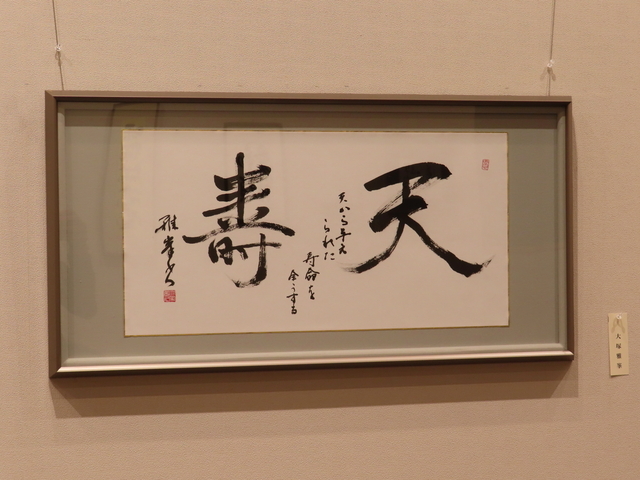 天
天から与え
られた
寿命を
全うする
寿
雅峯書
大塚雅峯